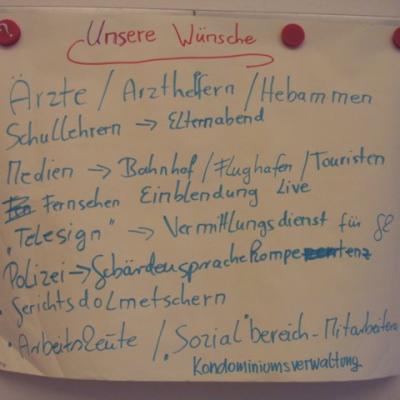 Unsere Wünsche
Ärzte / Arzthelfern / Hebammen
Schullehrern → Elternabend
Medien → Bahnhof / Flughafen / Touristen
Fernsehen Einblendung Live
"Telesign" → Vermittlungsdienst für GL
Polizei → Gebärdensprachekompetenz
• Gerichtsdolmetschern
• Arbeitsleute / "Sozial"bereich - Mitarbeitern
Kondominiumsverwaltung